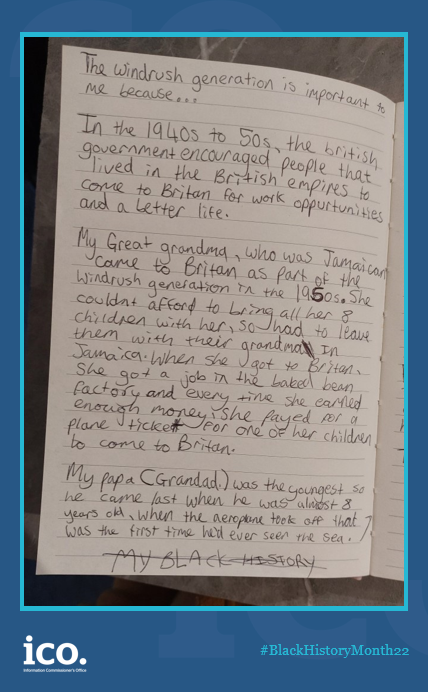 The windrush generation is important to
me because...
In the 1940s to 50s, the british
government encouraged people that
lived in the British empires to
come to Britan for work oppurtunities
and a better life.
My Great grandma, who was Jamaican
came to Britan as part of the
windrush generation in the 1950s. She
couldnt afford to bring all her 8
children with her, so had to leave
them with their grandma in
Jamaica. When she got to Britan,
She got a job in the baked bean
factory and every time she earned
enough money, she payed for a
plane ticket for one of her children
to come to Britan.
My papa (Grandad) was the youngest so
he came last when he was almost 8
years old, when the aeroplane took off that
was the first time he'd ever seen the sea.
MY BLACK HISTORY
ico.
Information Commissioner's Office
#BlackHistoryMonth22